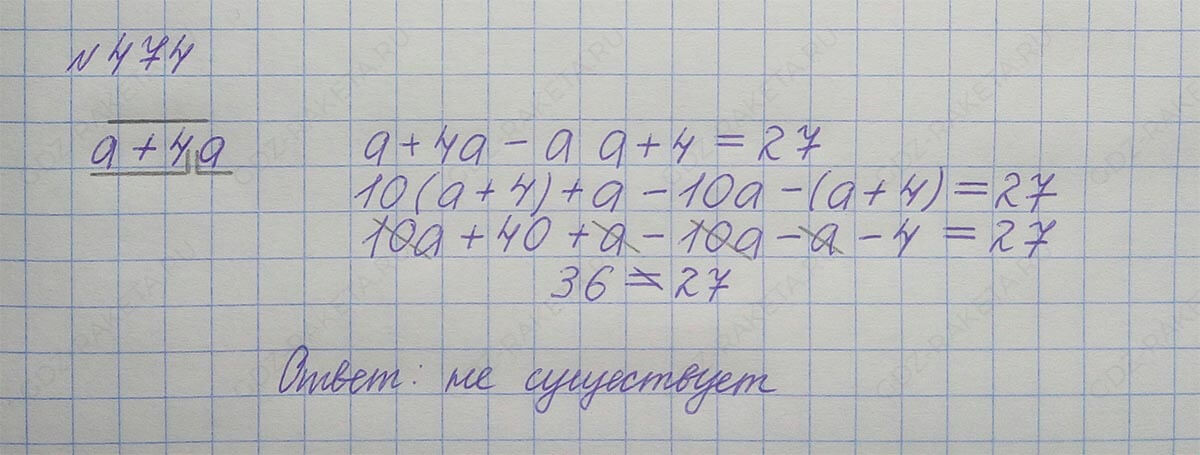 № 474
a + 4 a
a + 4a - a a + 4 = 27
10(a + 4) + a - 10a - (a + 4) = 27
10a + 40 + a - 10a - a - 4 = 27
36 ≠ 27
Ответ: не существует